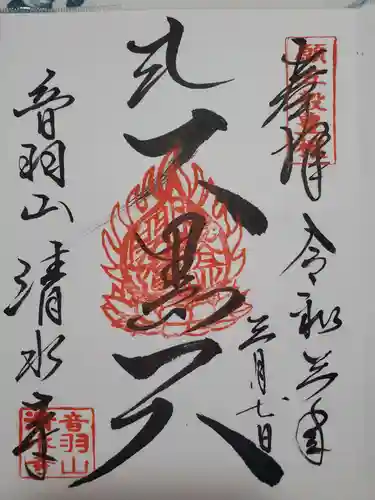 奉拝
令和三年
三月七日
大黒天
音羽山
清水寺
音羽山
清水寺